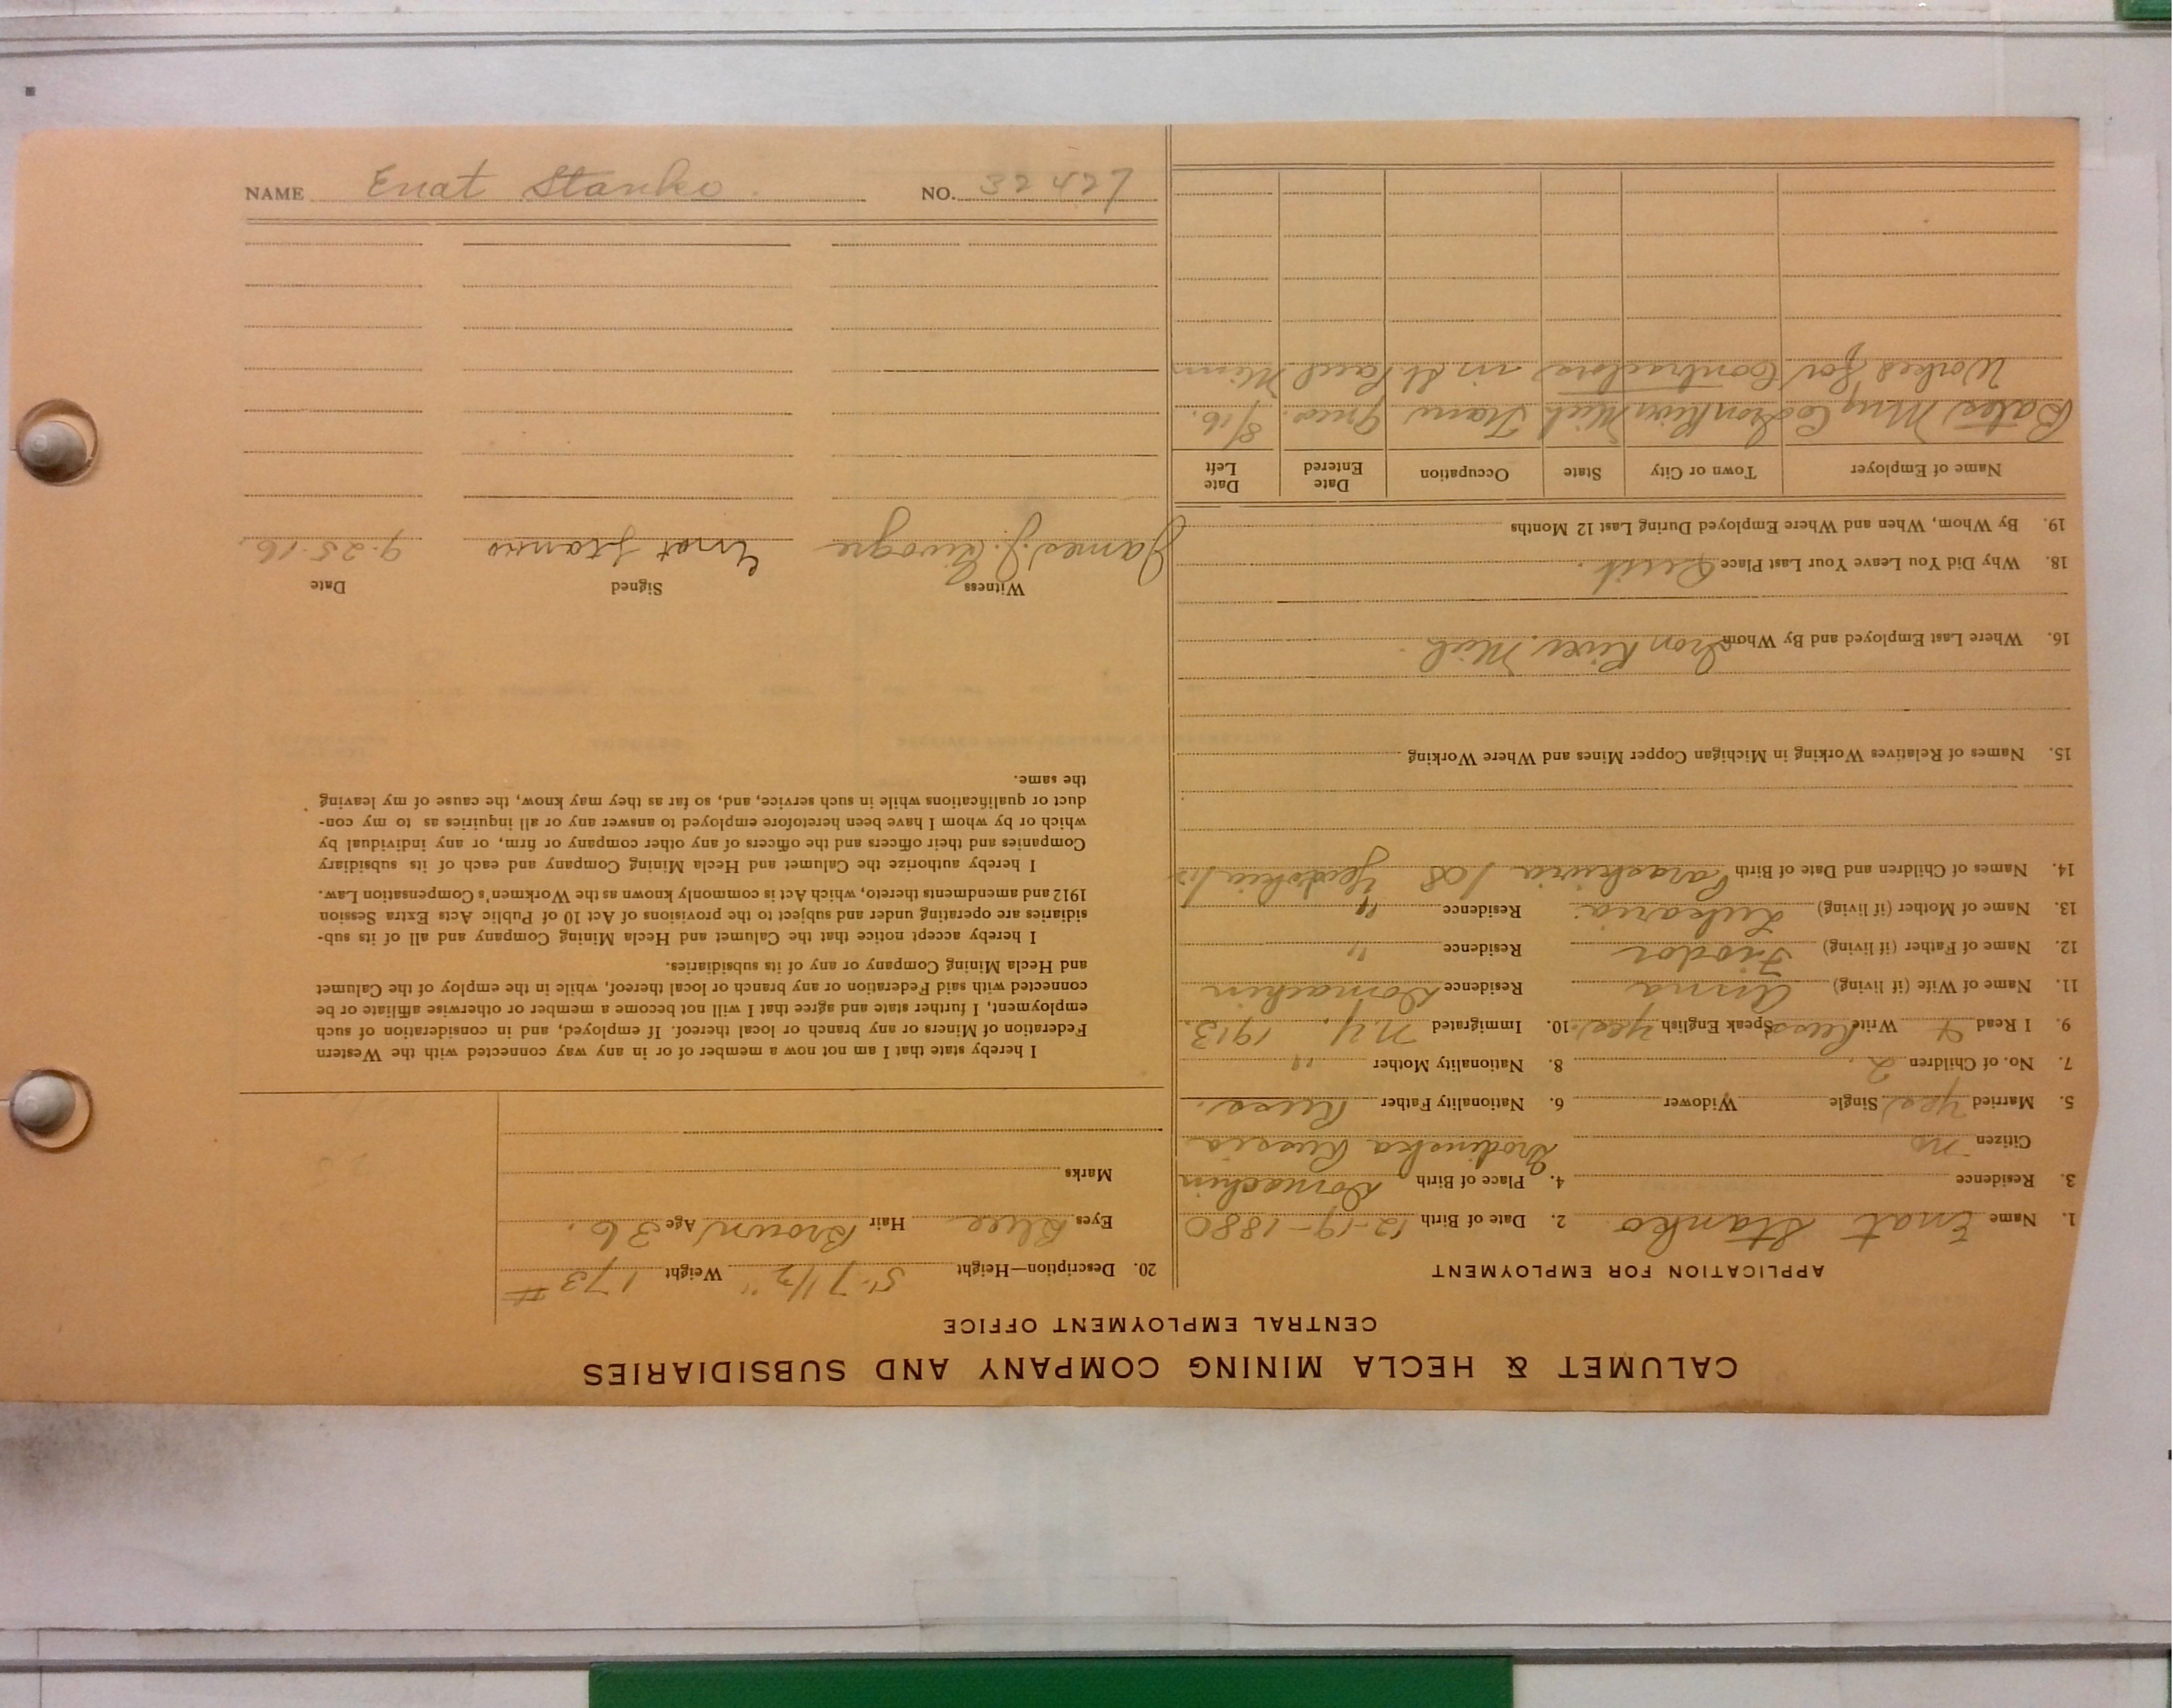 NAME Enat Stanko NO. 32427
CALUMET & HECLA MINING COMPANY AND SUBSIDIARIES
CENTRAL EMPLOYMENT OFFICE
APPLICATION FOR EMPLOYMENT
1. Name Enat Stanko 2. Date of Birth 12-19-1880
3. Residence 4. Place of Birth Domachin
Citizen no Grodinska Russia
5. Married Yes Single Widower 6. Nationality Father Russ.
7. No. of Children 2. 8. Nationality Mother "
9. I Read & Write Russ Speak English Yes 10. Immigrated N.Y. 1913.
11. Name of Wife (if living) Anna Residence Domachin
12. Name of Father (if living) Friodor Residence "
13. Name of Mother (if living) Lukaria Residence "
14. Names of Children and Date of Birth Paraskiwia / 08
15. Names of Relatives Working in Michigan Copper Mines and Where Working
16. Where Last Employed and By Whom Iron River, Mich.
18. Why Did You Leave Your Last Place Quit.
19. By Whom, When and Where Employed During Last 12 Months
Name of Employer Town or City State Occupation Date Entered Date Left
Bates Mng Co Iron River Mich Tram 9 mos. 8/16.
Worked for Contractors in St. Paul Minn
20. Description—Height 5'-7 1/2" Weight 173 #
Eyes Blue Hair Brown Age 36.
Marks
I hereby state that I am not now a member of or in any way connected with the Western
Federation of Miners or any branch or local thereof. If employed, and in consideration of such
employment, I further state and agree that I will not become a member or otherwise affiliate or be
connected with said Federation or any branch or local thereof, while in the employ of the Calumet
and Hecla Mining Company or any of its subsidiaries.
I hereby accept notice that the Calumet and Hecla Mining Company and all of its sub-
sidiaries are operating under and subject to the provisions of Act 10 of Public Acts Extra Session
1912 and amendments thereto, which Act is commonly known as the Workmen's Compensation Law.
I hereby authorize the Calumet and Hecla Mining Company and each of its subsidiary
Companies and their officers and the officers of any other company or firm, or any individual by
which or by whom I have been heretofore employed to answer any or all inquiries as to my con-
duct or qualifications while in such service, and, so far as they may know, the cause of my leaving
the same.
Witness Signed Date
James J. Enat Stanko 9-25-16.